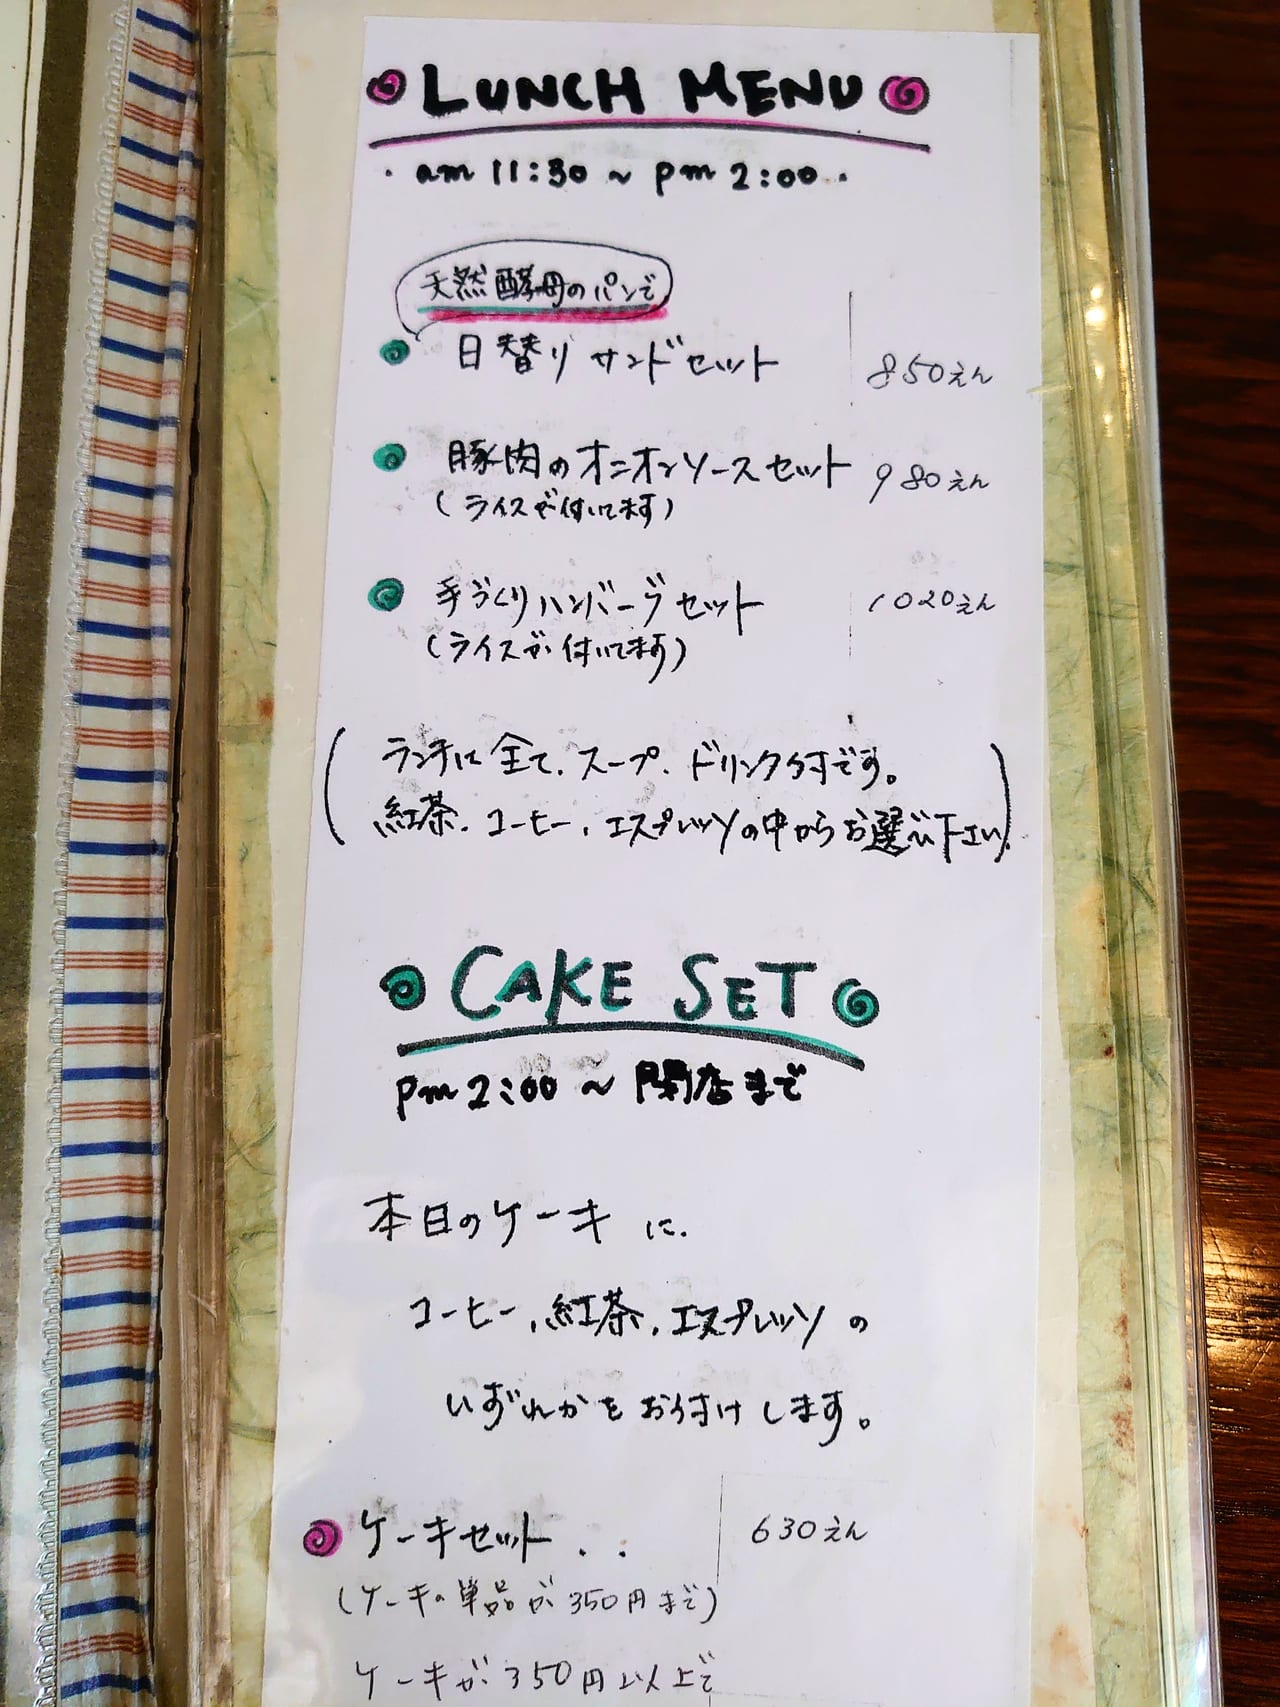 LUNCH MENU
・am 11:30 ~ pm 2:00・
天然酵母のパンで
日替り サンドセット 850えん
豚肉のオニオンソースセット 980えん
(ライスが付いてます)
手づくりハンバーグセット 1020えん
(ライスが付いてます)
(ランチに全て、スープ、ドリンク付です。
紅茶、コーヒー、エスプレッソの中からお選び下さい)
CAKE SET
pm 2:00 ~ 閉店まで
本日のケーキ に、
コーヒー、紅茶、エスプレッソ の
いずれかを お付けします。
ケーキセット ・・ 630えん
(ケーキの単品が 350円まで)
ケーキが 350円以上で